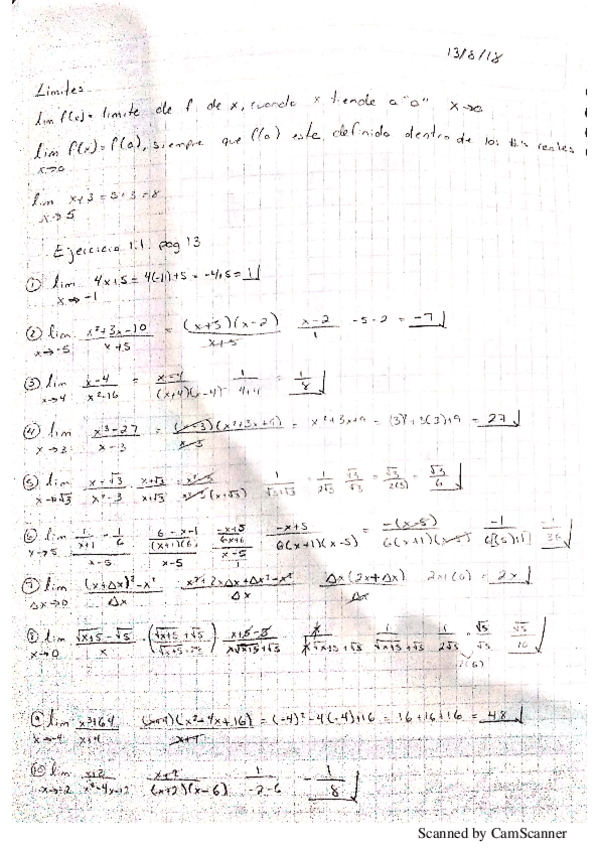 13/8/18
Limites
lim f(x) = limite de f de x, cuando x tiende a "a" x→a
lim f(x) = f(a), siempre que f(a) este definido dentro de los #s reales
x→a
lim x+3 = 5+3 = 8
x→5
Ejercicio 1.1 pag 13
① lim 4x+5 = 4(-1)+5 = -4+5 = 1
x→-1
② lim x²+3x-10 / x+5 = (x+5)(x-2) / x+5 x-2 / 1 -5-2 = -7
x→-5
③ lim x-4 / x²-16 = x-4 / (x+4)(x-4) 1 / 4+4 = 1/8
x→4
④ lim x³-27 / x-3 = (x-3)(x²+3x+9) / x-3 = x²+3x+9 = (3)²+3(3)+9 = 27
x→3
⑤ lim x-√3 / x²-3 x+√3 / x+√3 = x²-3 / x²-3(x+√3) 1 / √3+√3 = 1 / 2√3 √3 / √3 = √3 / 2(3) = √3 / 6
x→√3
⑥ lim 1/x+1 - 1/6 / x-5 6-x-1 / (x+1)(6) / x-5 -x+5 / 6x+6 / x-5 / 1 -x+5 / 6(x+1)(x-5) = -(x-5) / 6(x+1)(x-5) -1 / 6[(5)+1] -1 / 36
x→5
⑦ lim (x+Δx)²-x² / Δx x²+2xΔx+Δx²-x² / Δx Δx(2x+Δx) / Δx 2x+(0) = 2x
Δx→0
⑧ lim √x+5 - √5 / x (√x+5 + √5 / √x+5 + √5) x+5-5 / x√x+5+√5 x / x√x+5+√5 1 / √x+5+√5 1 / 2√5 √5 / √5 √5 / 10
x→0
⑨ lim x³+64 / x+4 (x+4)(x²-4x+16) / x+4 = (-4)²-4(-4)+16 = 16+16+16 = 48
x→-4
⑩ lim x+2 / x²-4x-12 x+2 / (x+2)(x-6) 1 / -2-6 - 1 / 8
x→-2
Scanned by CamScanner